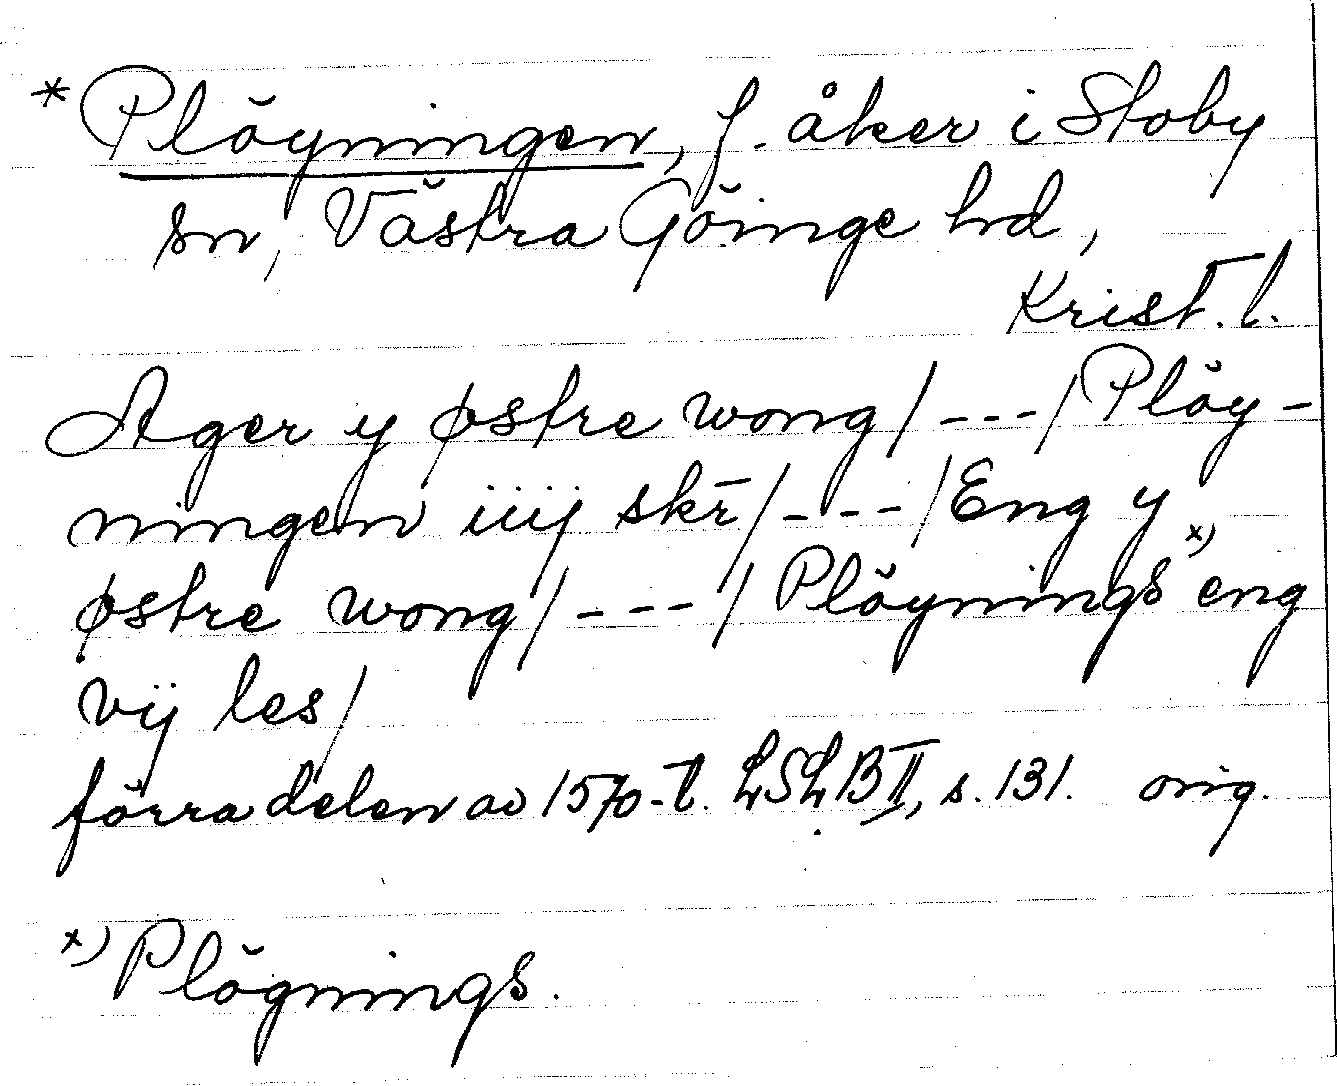 * Plöyningen, f. åker i Stoby
sn, Västra Göinge hd,
Krist. l.
Ager y østre wong /---/ Plöy-
ningen iiij skr̄ /---/ Eng y
østre wong /---/ Plöynings x) eng
vij les/
förra delen av 1570-t. LSLB II, s. 131. orig.
x) Plögnings.